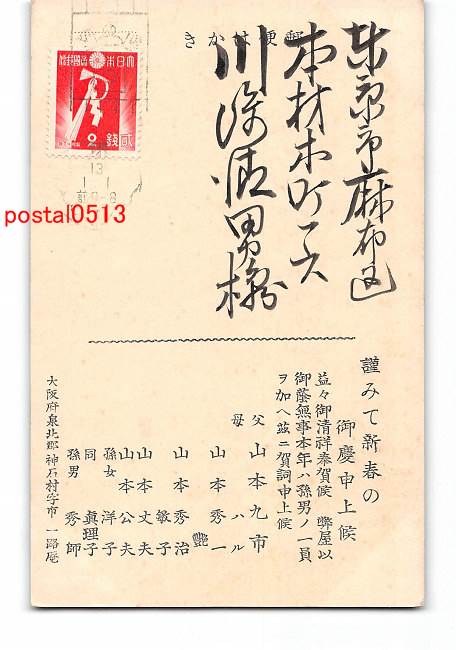 郵便はかき
東京市麻布区
本村木町一ノ
川添
男様
大日本帝国郵便
弐銭
2
13
1 1
前0-8
postal0513
謹みて新春の
御慶申上候
益々御清祥奉賀候 弊屋以
御蔭無事本年ハ孫男ノ一員
ヲ加ヘ茲ニ賀詞申上候
父 山本九市
母 ハル
山本秀一
艶
山本秀治
敏子
山本丈夫
山本公夫
孫女 洋子
同 眞理子
孫男 秀師
大阪府泉北郡神石村字市 一路庵